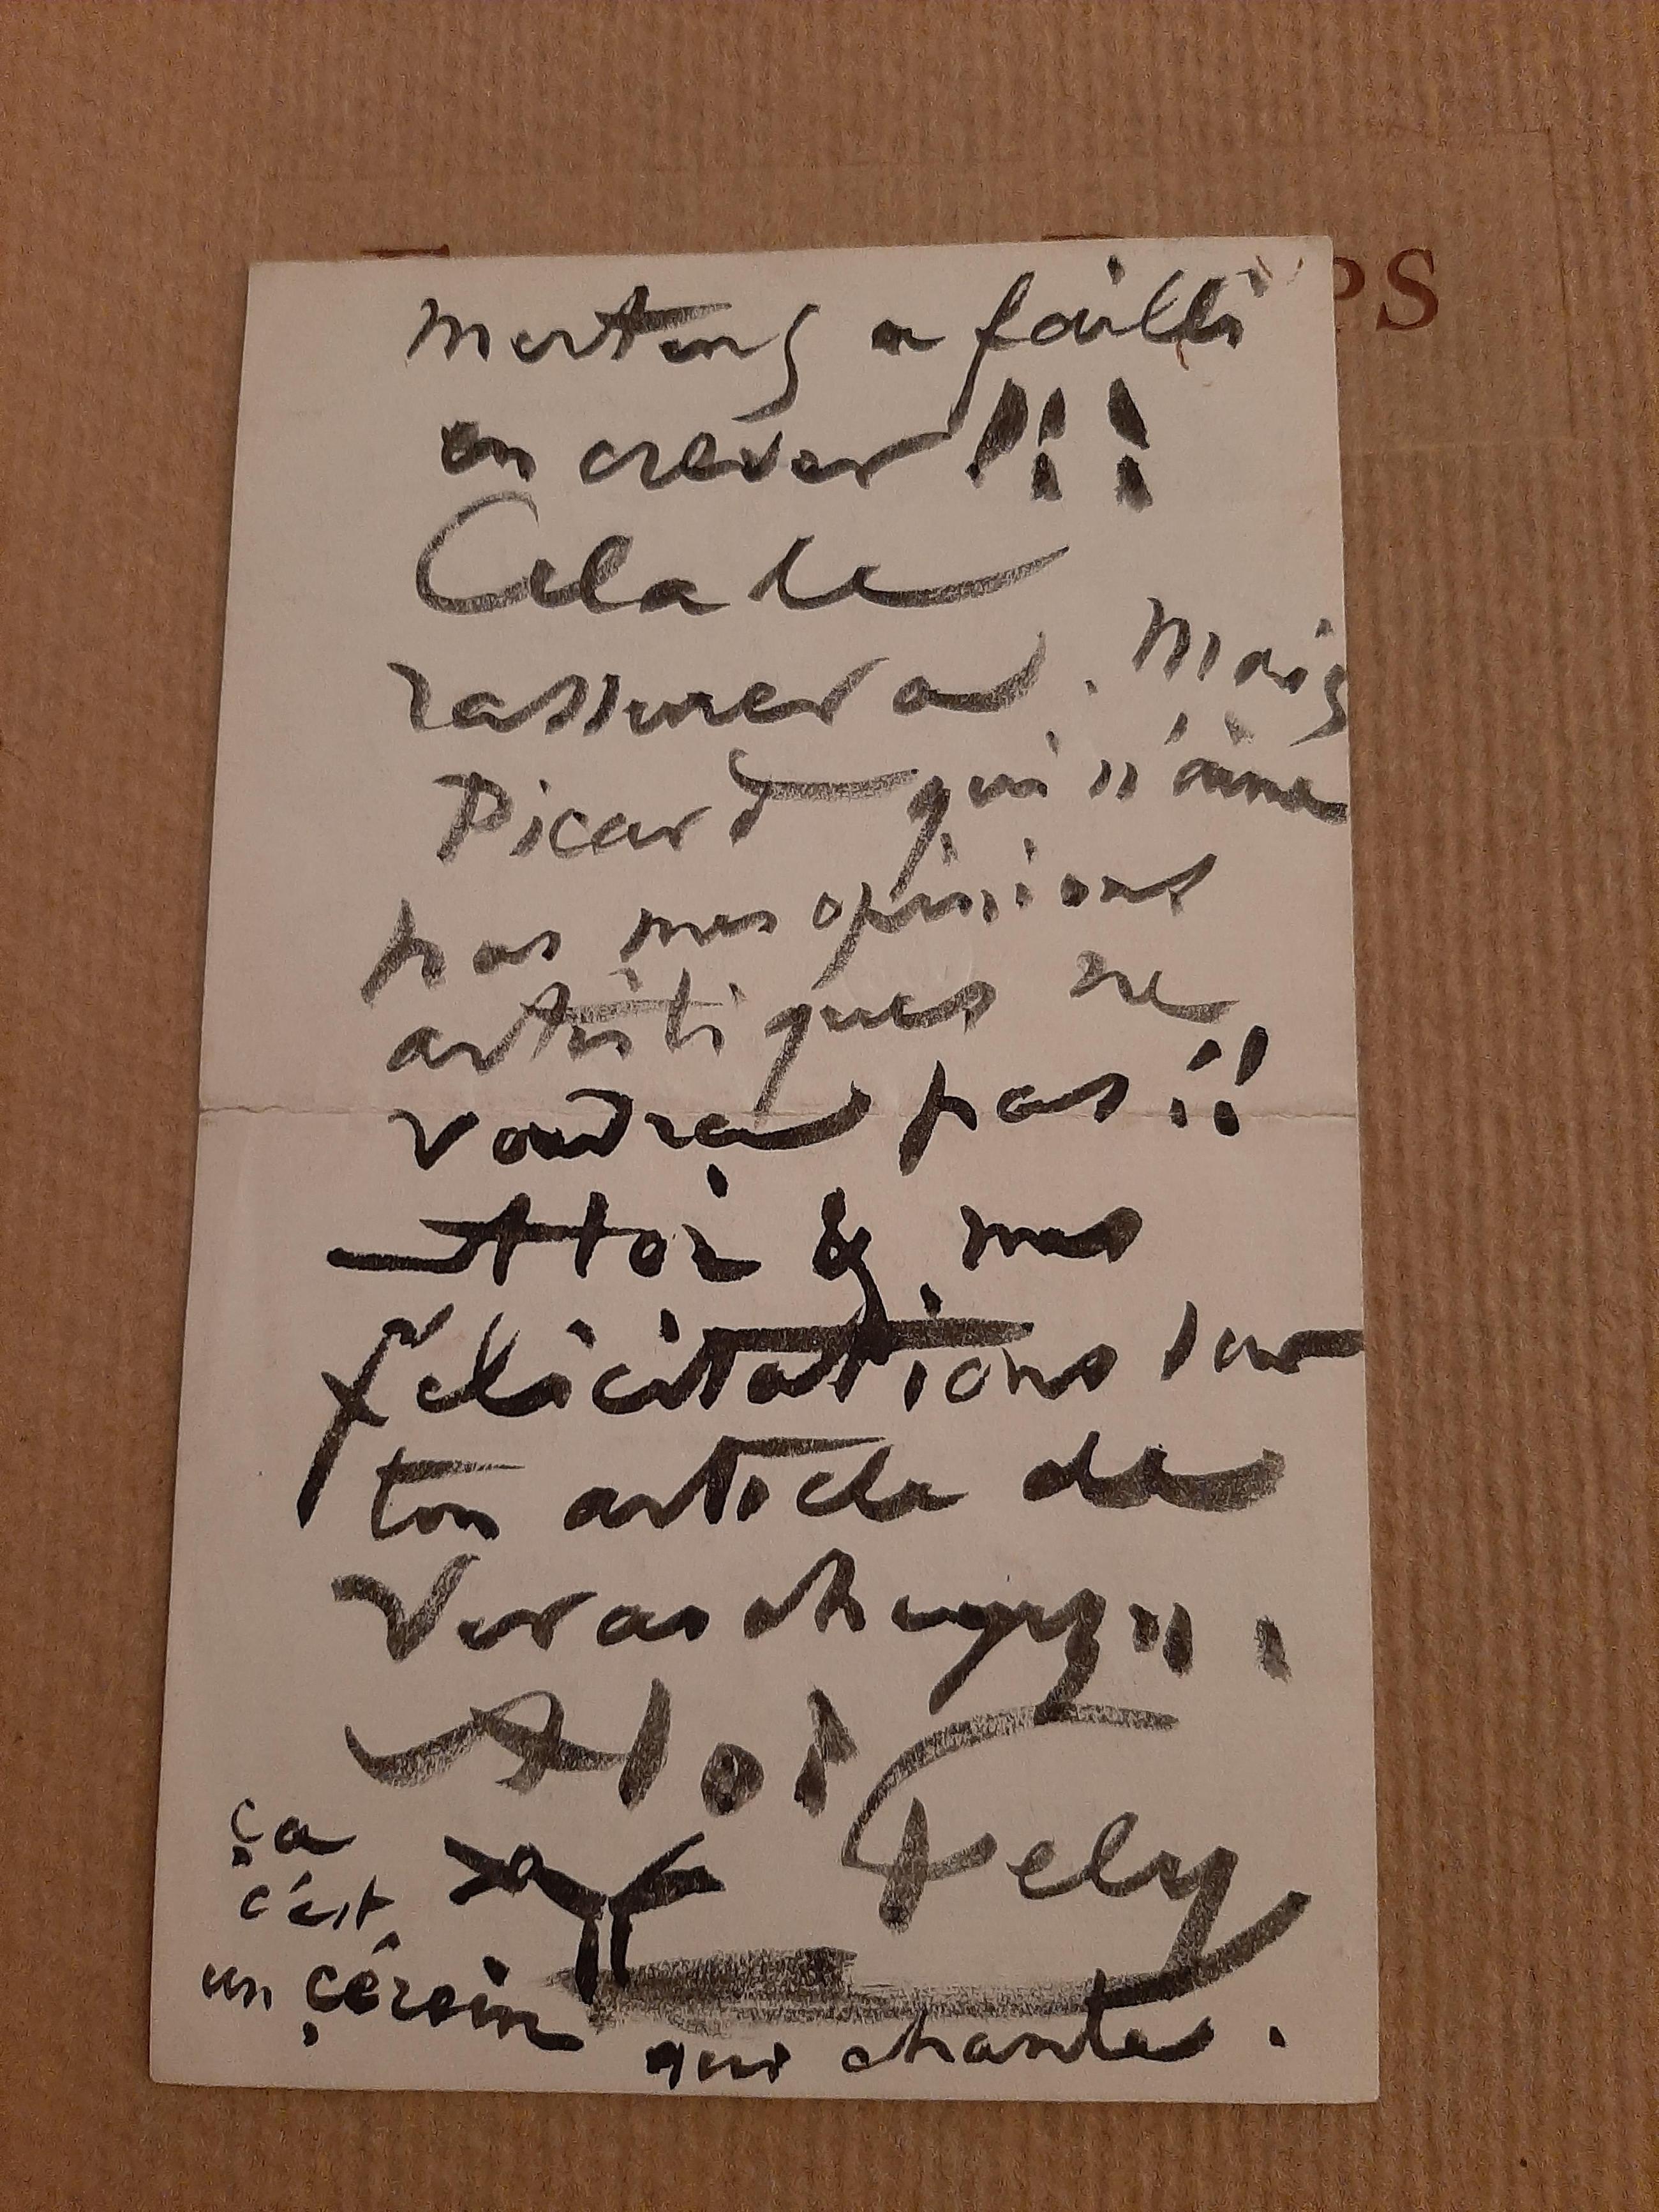 PS
Mertens a failli
en crever !!!
Cela le
rassurera. Mais
Picard qui n'aime
pas mes opinions
artistiques ne
voudra pas !!
A toi & mes
félicitations sur
ton article de
A toi
Fely
ça
c'est
un çérein
qui chante.